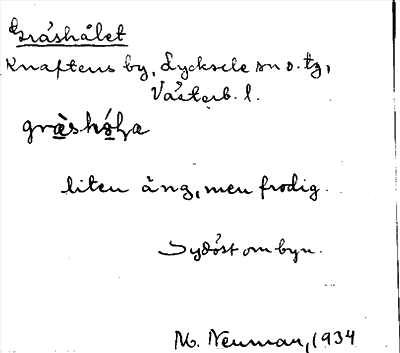 Gräshålet
Knaftens by, Lycksele sn o. tg,
Västerb. l.
liten äng, men frodig.
Sydöst om byn.
M. Neuman, 1934